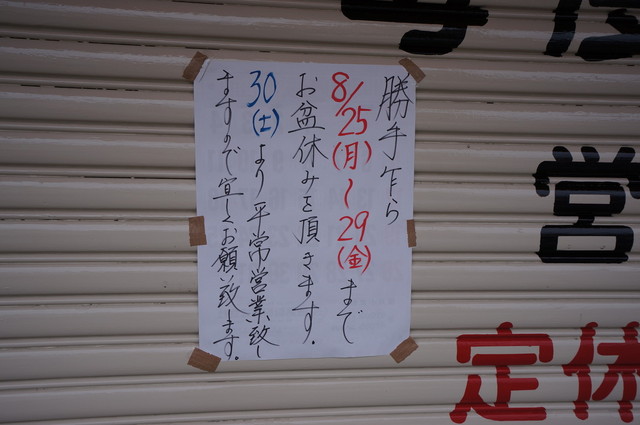 勝手乍ら
8/25(月)~29(金)まで
お盆休みを頂きます.
30(土)より平常営業致し
ますので宜しくお願い致します。
営
定休